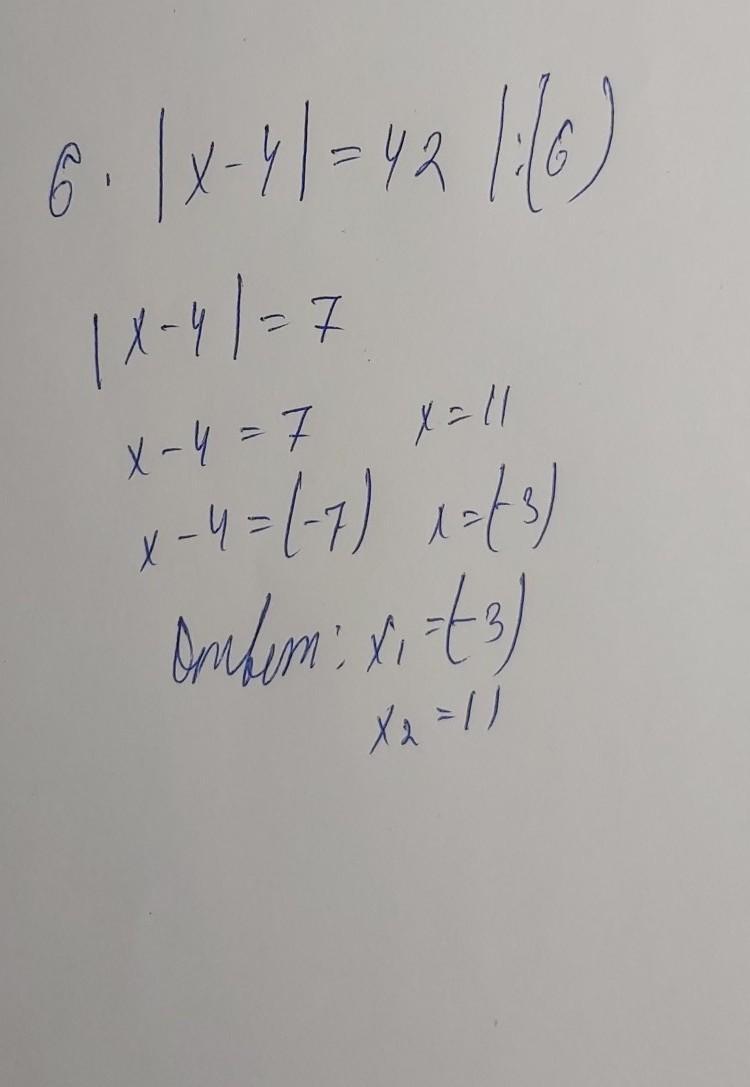 6 · |x-4| = 42 |:(6)
|x-4| = 7
x-4 = 7 x=11
x-4=(-7) x=(-3)
Ответ: x₁=(-3)
x₂=11